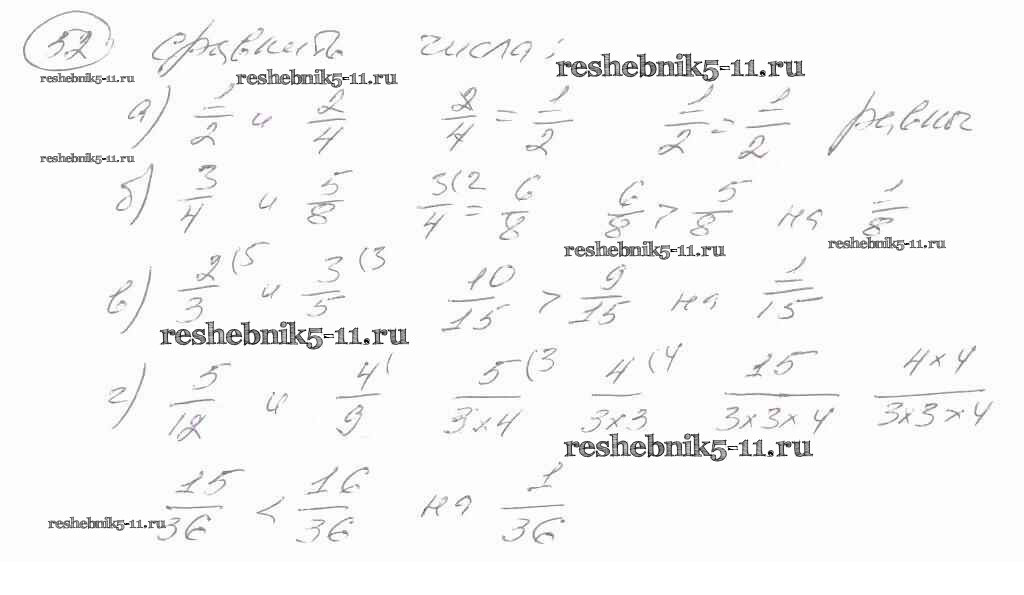 52) сравнить числа:
reshebnik5-11.ru reshebnik5-11.ru reshebnik5-11.ru
а) 1/2 и 2/4 2/4 = 1/2 1/2 = 1/2 равны
reshebnik5-11.ru
б) 3/4 и 5/8 3(2/4 = 6/8 6/8 > 5/8 на 1/8
reshebnik5-11.ru reshebnik5-11.ru
в) 2(5/3 и 3(3/5 10/15 > 9/15 на 1/15
reshebnik5-11.ru
г) 5/12 и 4(/9 5(3/3×4 4(4/3×3 15/3×3×4 4×4/3×3×4
reshebnik5-11.ru
15/36 < 16/36 на 1/36
reshebnik5-11.ru